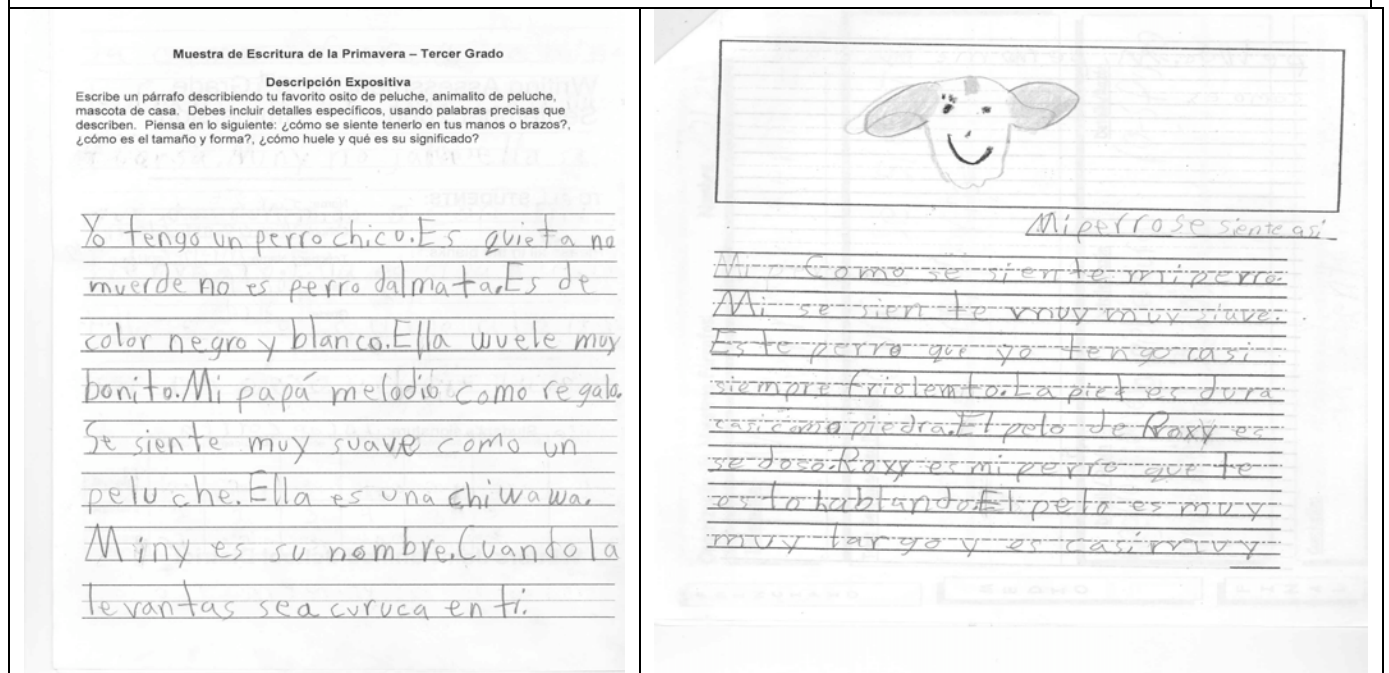 Muestra de Escritura de la Primavera – Tercer Grado
Descripción Expositiva
Escribe un párrafo describiendo tu favorito osito de peluche, animalito de peluche,
mascota de casa. Debes incluir detalles específicos, usando palabras precisas que
describen. Piensa en lo siguiente: ¿cómo se siente tenerlo en tus manos o brazos?,
¿cómo es el tamaño y forma?, ¿cómo huele y qué es su significado?
Yo tengo un perro chico. Es quieta no
muerde no es perro dalmata. Es de
color negro y blanco. Ella wuele muy
bonito. Mi papá melodio como regalo.
Se siente muy suave como un
peluche. Ella es una chiwawa.
Miny es su nombre. Cuando la
levantas seacuruca en ti.
Mi perro se siente asi
Como se siente mi perro.
Mi se siente muy muy siuve.
Este perro que yo tengo casi
siempre friolemto. La piel es dura
casi como piedra. El pelo de Roxy es
se doso. Roxy es mi perro que te
es to hablando. El pelo es muy
muy largo y es casi muy